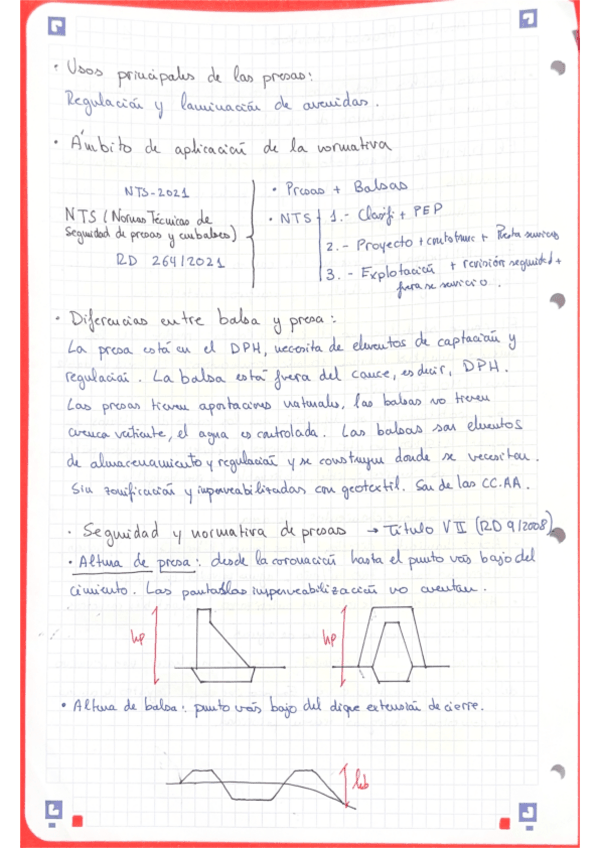 · Usos principales de las presas:
Regulación y laminación de avenidas.
· Ámbito de aplicación de la normativa
NTS-2021
NTS (Normas Técnicas de
Seguridad de presas y embalses)
RD 264/2021
· Presas + Balsas
· NTS
1.- Clasifi + PEP
2.- Proyecto + construc + Puesta servicio
3.- Explotación + revisión seguridad +
fuera se servicio.
· Diferencias entre balsa y presa:
La presa está en el DPH, necesita de elementos de captación y
regulación. La balsa está fuera del cauce, es decir, DPH.
Las presas tienen aportaciones naturales, las balsas no tienen
cuenca vertiente, el agua es controlada. Las balsas son elementos
de almacenamiento y regulación y se construyen donde se necesitan.
Sin zonificación y impermeabilizadas con geotextil. Son de las CC.AA.
· Seguridad y normativa de presas → Título VII (RD 9/2008)
· Altura de presa: desde la coronación hasta el punto más bajo del
cimiento. Las pantallas impermeabilización no cuentan.
hp
hp
· Altura de balsa: punto más bajo del dique extensión de cierre.
hb